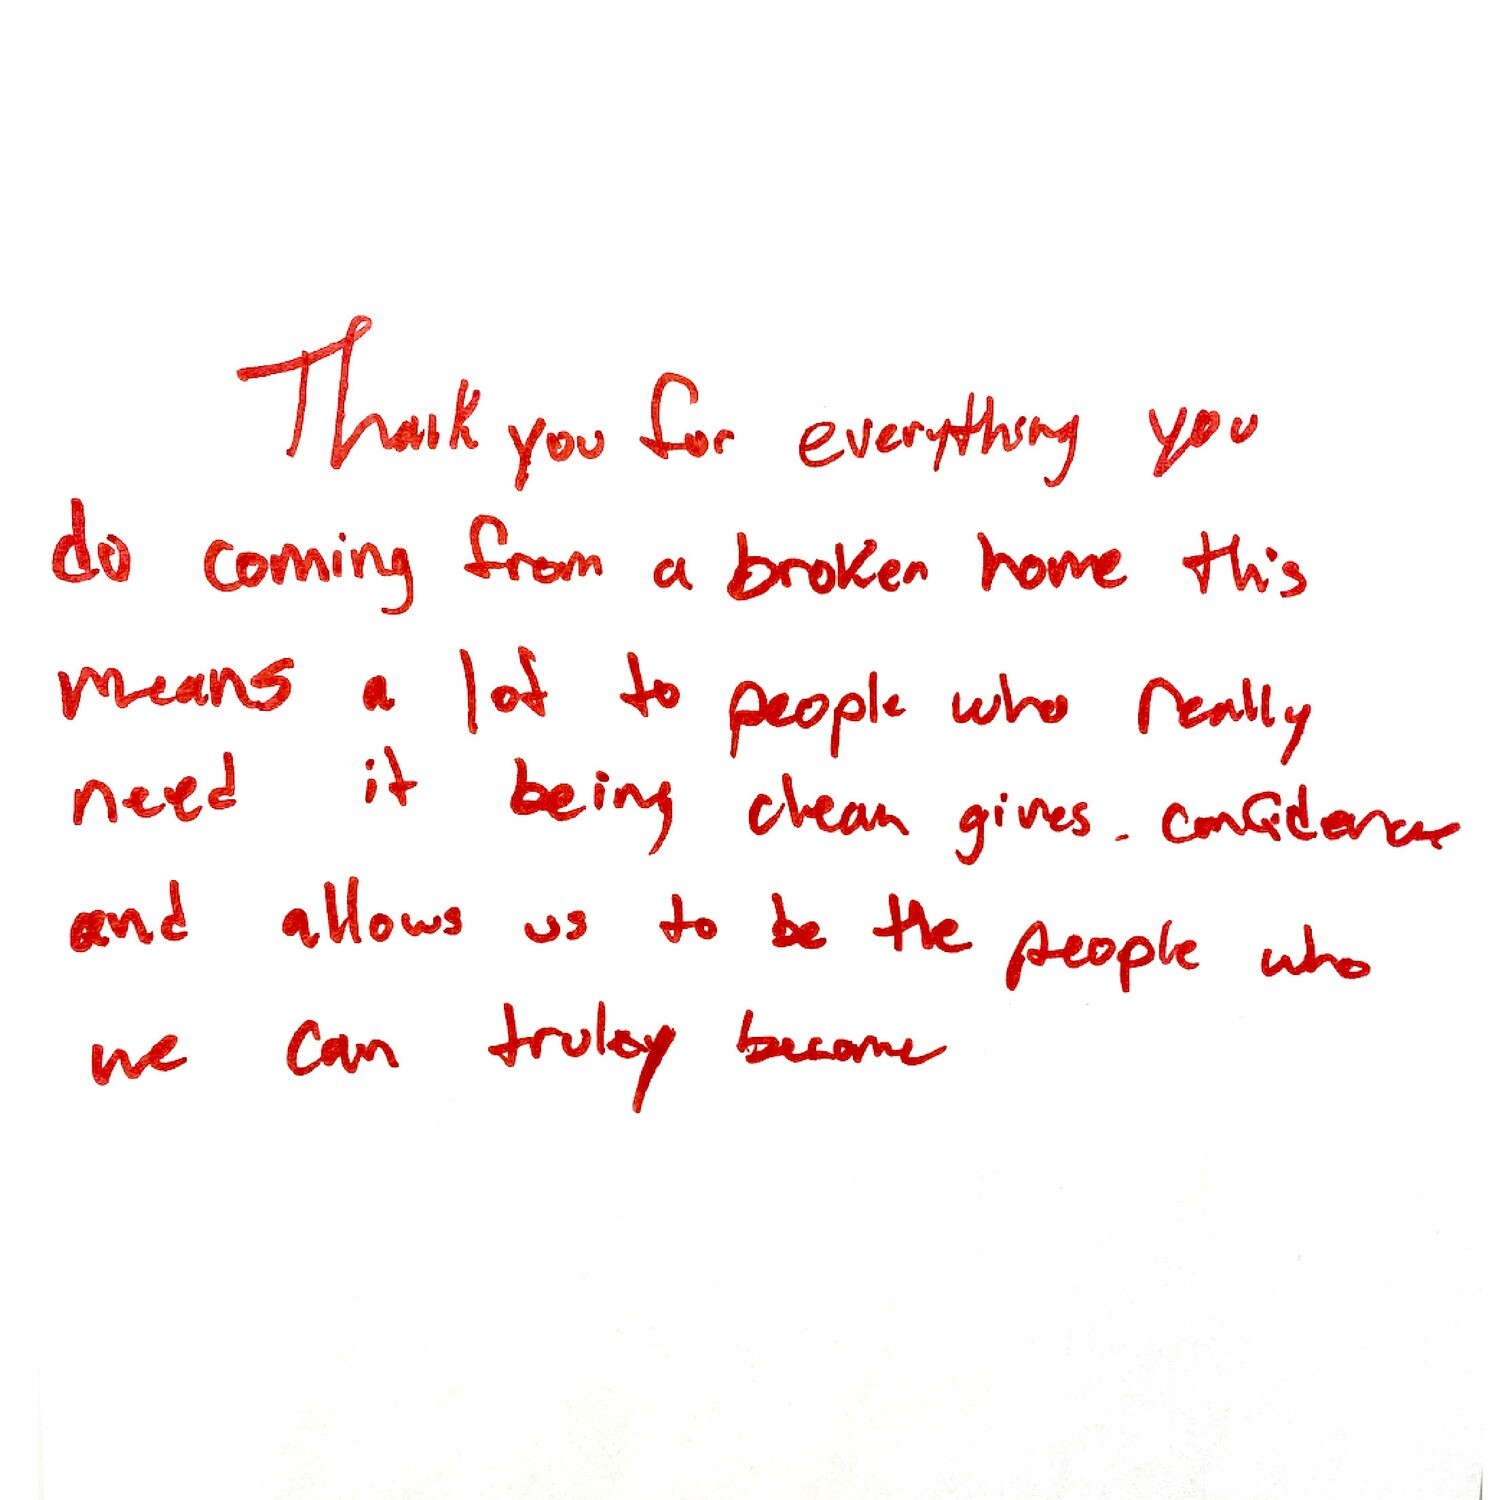 Thank you for everything you
do coming from a broken home this
means a lot to people who really
need it being clean gives confidence
and allows us to be the people who
we can truley become